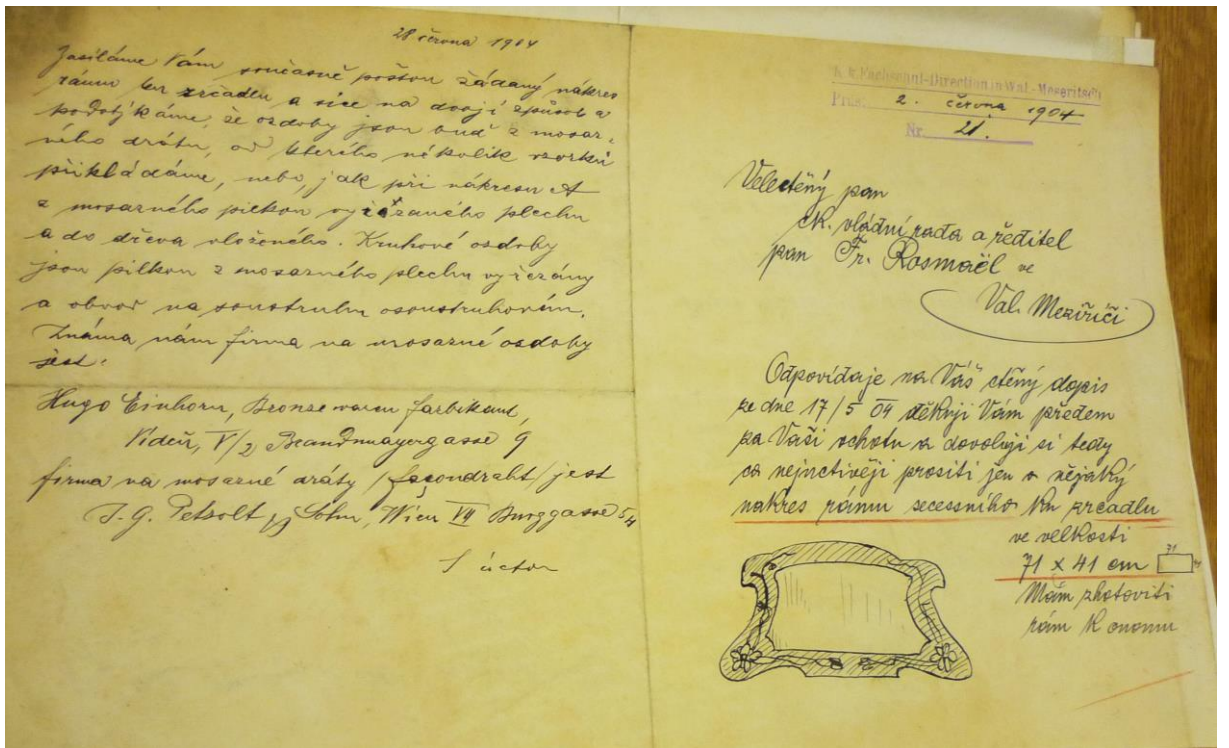 28 června 1904
Zasíláme Vám současně poštou žádaný nákres
rámu ku zrcadlu a sice na dvojí způsob a
podotýkáme, že ozdoby jsou buď z mosaz-
ného drátu, od kterého několik vzorků
přikládáme, nebo, jak při nákresu A
z mosazného pilkou vyřezaného plechu
a do dřeva vloženého. Kruhové ozdoby
jsou pilkou z mosazného plechu vyřezány
a obvod na soustruhu osoustruhován.
Známa nám firma na mosazné ozdoby
jest:
Hugo Einhorn, Bronzewaren farbikant,
Vídeň, V/2 Brandmayergasse 9
firma na mosazné dráty /façondraht/ jest
J. G. Petzolt Sohn, Wien VII Burggasse 54
S úctou
K. k. Fachschul-Direction in Wal.-Meseritsch
Präs. 2. června 1904
Nr. 21.
Velectěný pan
ck. vládní rada a ředitel
pan Fr. Rosmaël ve
Val. Meziříčí
Odpovídaje na Váš ctěný dopis
ze dne 17/5 04 děkuji Vám předem
za Vaši ochotu a dovoluji si tedy
co nejuctivěji prositi jen o nějaký
nakres rámu secessního ku zrcadlu
ve velkosti
71 x 41 cm 71 41
Mám zhotoviti
rám k onomu